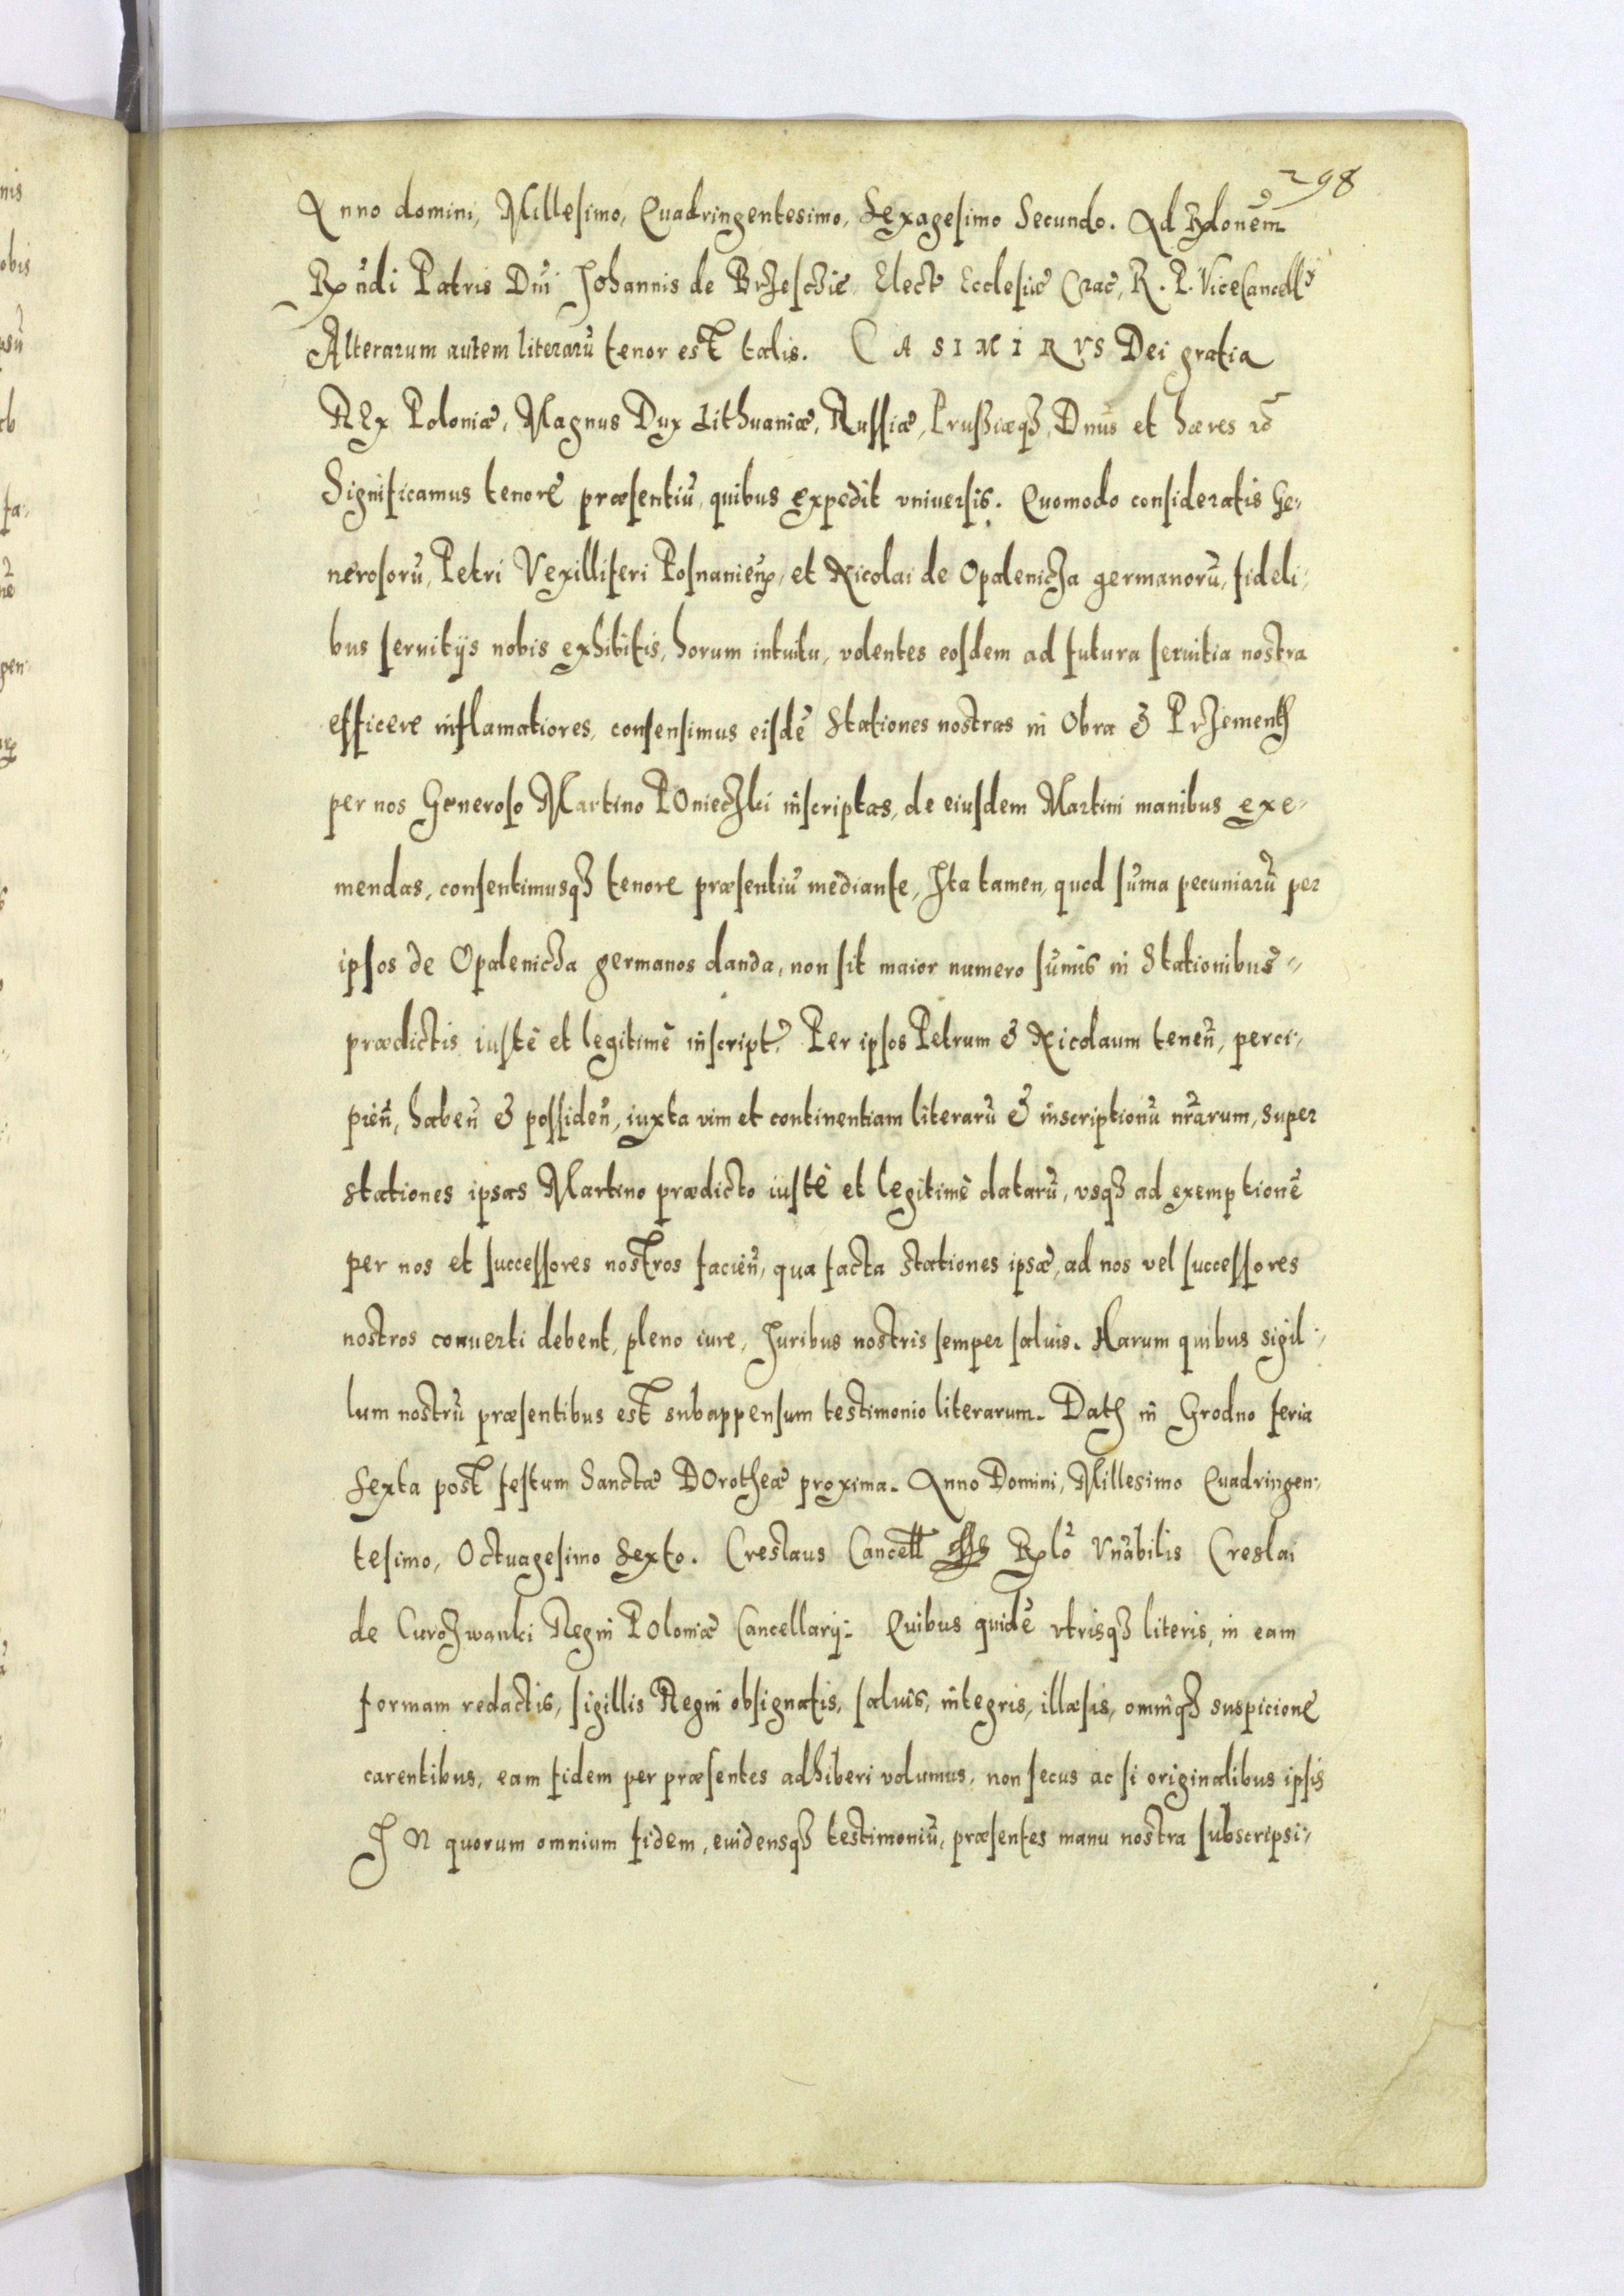 298
Anno domini, Millesimo, Quadringentesimo, Sexagesimo Secundo. Ad Rłonem
Rndi Patris Dni Johannis de Brzeschie Elect Ecclesiæ Crac, R. P. ViceCancell
Alterarum autem literarũ tenor est talis. CASIMIRVS Dei gratia
REx Poloniæ, Magnus Dux Lithuaniæ, Russiæ, Prussiæqȝ, Dnus et hæres
Significamus tenore præsentiũ, quibus expedit vniuersis. Quomodo consideratis Ge-
nerosorũ, Petri Vexilliferi Posnanien, et Nicolai de Opalenicza germanorũ, fideli-
bus seruitijs nobis exhibitis, horum intuitu, volentes eosdem ad futura seruitia nostra
efficere inflamatiores, consensimus eisdẽ Stationes nostras in Obra & Przementh
per nos Generoso Martino POnieczki inscriptas, de eiusdem Martini manibus exe-
mendas, consentimusqȝ tenore præsentiũ mediante, Ita tamen, quod sũma pecuniarũ per
ipsos de Opalenicza germanos danda, non sit maior numero sũmis in Stationibus
prædictis iustè et legitimè inscript. Per ipsos Petrum & Nicolaum tenen̄, perci-
pien̄, haben̄ & possiden̄, iuxta vim et continentiam literarũ & inscriptionũ nr̃arum, super
stationes ipsas Martino prædicto iustè et legitimè datarũ, vsqȝ ad exemptionẽ
per nos et successores nostros facien̄, qua facta stationes ipsæ, ad nos vel successores
nostros conuerti debent, pleno iure, Juribus nostris semper saluis. Harum quibus sigil-
lum nostrũ præsentibus est subappensum testimonio literarum. Dath in Grodno feria
Sexta post festum Sanctæ DOrotheæ proxima. Anno Domini, Millesimo Quadringen-
tesimo, Octuagesimo Sexto. Creslaus Cancell Rłlo Vnabilis Creslai
de Curozwanki Regni POloniæ Cancellarij. Quibus quidẽ vtrisqȝ literis, in eam
formam redactis, sigillis Regni obsignatis, saluis, integris, illæsis, omniqȝ suspicione
carentibus, eam fidem per præsentes adhiberi volumus, non secus ac si originalibus ipsis
IN quorum omnium fidem, euidensqȝ testimoniũ, præsentes manu nostra subscripsi-